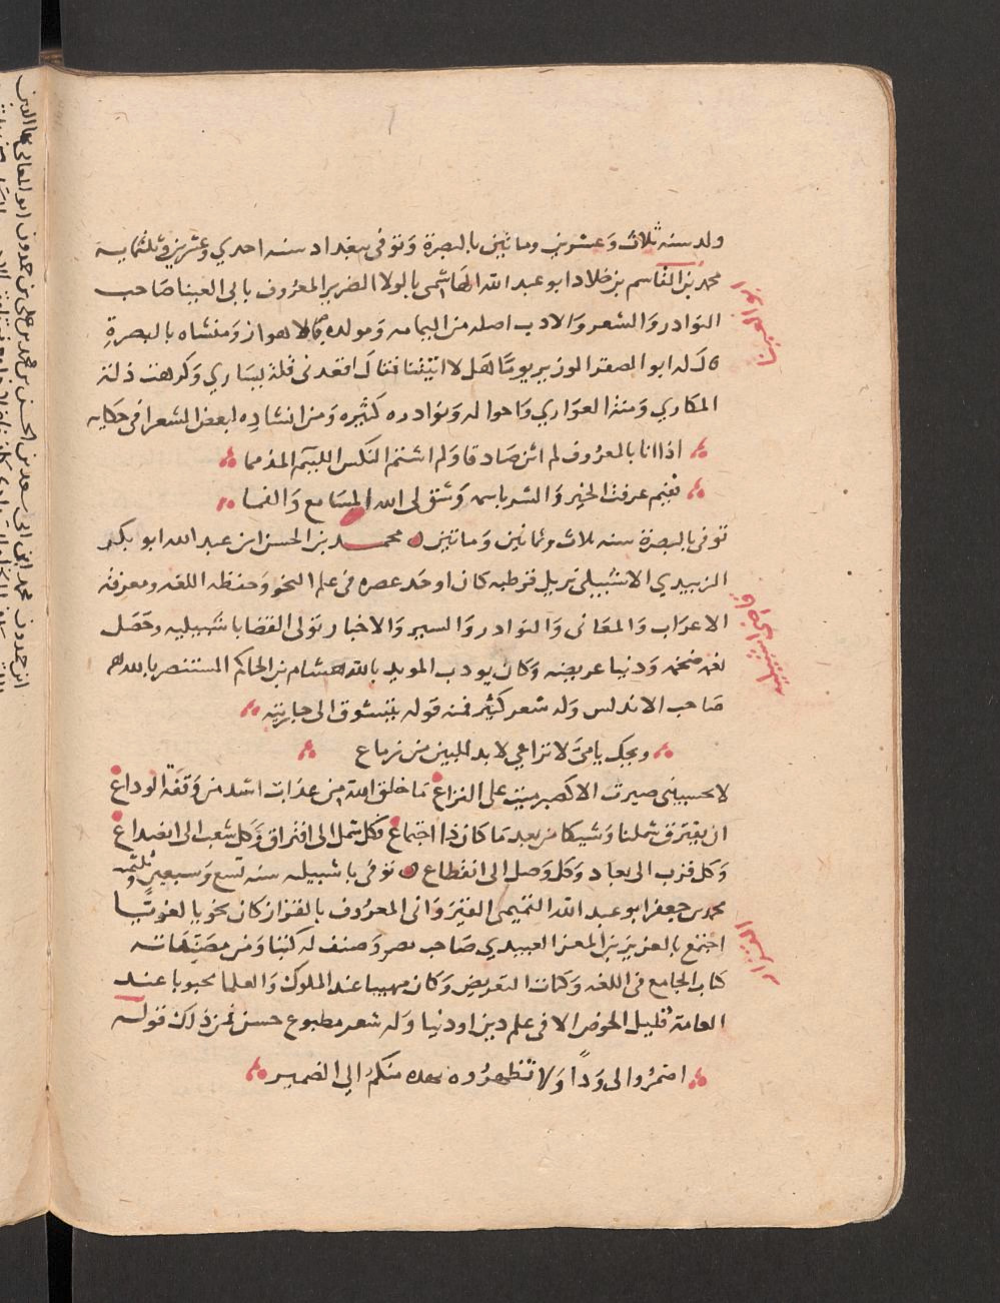 ولد سنه ثلاث وعشرين وماتين بالبصرة وتوفى ببغداد سنه احدي وعشرين وثلثمايه
محمد بن القاسم بن خلاد ابو عبد الله الهاشمى بالولا الضرير المعروف بابى العينا صاحب
ابو العينا
النوادر والشعر والادب اصله من اليمامه ومولده بالاهواز ومنشاه بالبصرة
قال له ابو الصقر الوزير يوما هل لا اتيتنا فقال اقعدنى قلة يسارى وكرهت ذلة
المكاري ومنة العواري واحواله ونوادره كثيره ومن انشاده لبعض الشعرا فى حكايه
اذا انا بالمعروف لم اثن صادقا ولم اشتم النكس اللئيم المذمما
ففيم عرفت الخير والشر باسمه وشق لى الله المسامع والفما
توفى بالبصرة سنه ثلاث وثمانين وماتين محمد بن الحسن ابن عبد الله ابو بكر
الزبيدي الاشبيلى نزيل قرطبه كان اوحد عصره فى علم النحو وحفظه اللغه ومعرفة
قاضى اشبيليه
الاعراب والمعانى والنوادر والسير والاخبار تولى القضا باشبيليه وحصل
نعمه ضخمه ودنيا عريضه وكان يودب المويد بالله هشام بن الحاكم المستنصر بالله
صاحب الاندلس وله شعر كثير فمنه قوله يتشوق الى جاريته
ويحك يا سلم لا تراعي لا بد للبين من زماع
لا تحسبينى صبرت الا كصبر ميت على النزاع ما خلق الله من عذاب اشد من وقفة الوداع
ان يفترق شملنا وشيكا من بعد ما كان ذا اجتماع فكل شمل الى افتراق وكل شعب الى انصداع
وكل قرب الى بعاد وكل وصل الى انقطاع توفى باشبيليه سنه تسع وسبعين وثلثمه
محمد بن جعفر ابو عبد الله التميمى القيروانى المعروف بالقزاز كان نحويا لغويا
القزاز
اجتمع بالعزيز بن المعز العبيدي صاحب مصر وصنف له كتبا ومن مصنفاته
كتاب الجامع فى اللغه وكتاب التعريض وكان مهيبا عند الملوك والعلما محبوبا عند
العامة قليل الخوض الا فى علم دين او دنيا وله شعر مطبوع حسن فمن ذلك قوله
اضمروا لى ودا ولا تظهروه يهده منكم الى الضمير